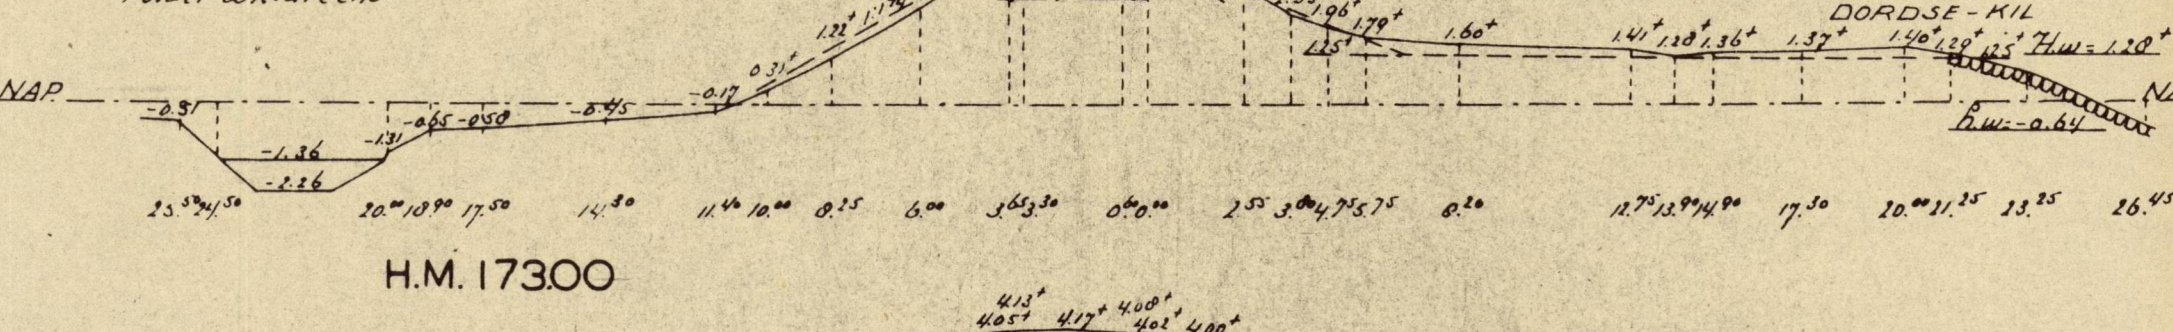 DORDSE-KIL
1.96+ 1.79+ 1.60+ 1.41+ 1.28+ 1.36+ 1.37+ 1.40+ 1.29+ 1.25+ H.W=1.28+
1.22+
1.25+
0.31+
NAP -0.17
-0.45
-0.65 -0.58
-1.31
h.w=-0.64
-1.36
-2.26
25.50 24.50 20.00 18.90 17.50 14.30 11.40 10.00 8.25 6.00 3.65 3.30 0.60 0.00 2.55 3.80 4.75 5.75 8.20 12.75 13.90 14.90 17.30 20.00 21.25 23.25 26.45
H.M. 173.00
4.13+ 4.08+
4.05+ 4.17+ 4.02+ 4.00+